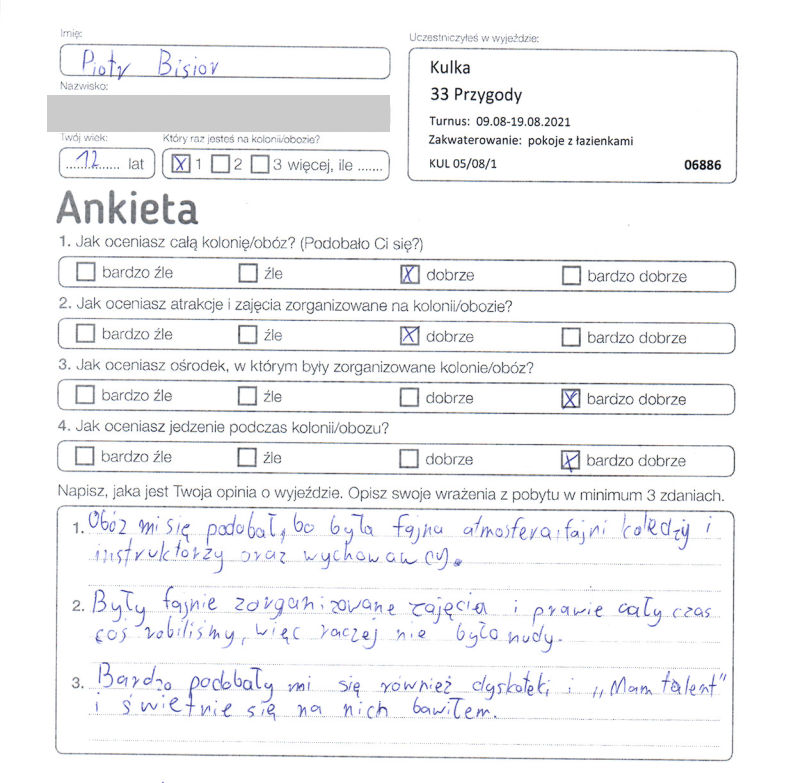 Imię:
Piotr Bisior
Nazwisko:
Twój wiek:
12 lat
Który raz jesteś na kolonii/obozie?
X 1 2 3 więcej, ile .......
Uczestniczyłeś w wyjeździe:
Kulka
33 Przygody
Turnus: 09.08-19.08.2021
Zakwaterowanie: pokoje z łazienkami
KUL 05/08/1 06886
Ankieta
1. Jak oceniasz całą kolonię/obóz? (Podobało Ci się?)
bardzo źle źle X dobrze bardzo dobrze
2. Jak oceniasz atrakcje i zajęcia zorganizowane na kolonii/obozie?
bardzo źle źle X dobrze bardzo dobrze
3. Jak oceniasz ośrodek, w którym były zorganizowane kolonie/obóz?
bardzo źle źle dobrze X bardzo dobrze
4. Jak oceniasz jedzenie podczas kolonii/obozu?
bardzo źle źle dobrze X bardzo dobrze
Napisz, jaka jest Twoja opinia o wyjeździe. Opisz swoje wrażenia z pobytu w minimum 3 zdaniach.
1. Obóz mi się podobał, bo była fajna atmosfera, fajni koledzy i
instruktorzy oraz wychowawcy.
2. Były fajnie zorganizowane zajęcia i prawie cały czas
coś robiliśmy, więc raczej nie było nudy.
3. Bardzo podobały mi się również dyskoteki i „Mam talent"
i świetnie się na nich bawiłem.